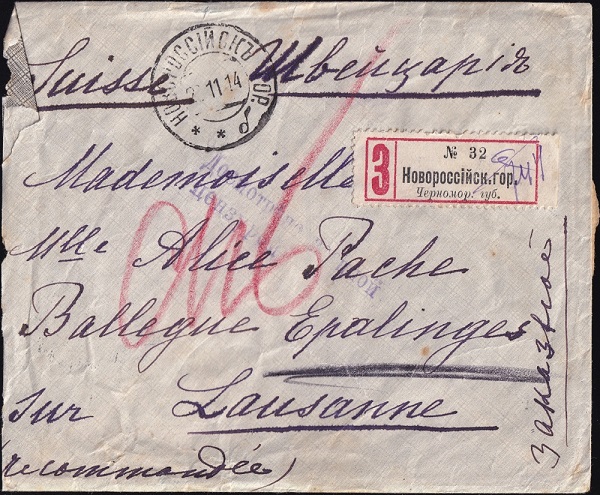 Suisse Швейцарія
НОВОРОССІЙСКЪ ГОР.
11 14
* * б
Mademoiselle
З
№ 32
Новороссійск.гор.
Черномор. губ.
Mlle Alice Pache
Ballegue Epalinges
sur Lausanne
(recommandée)
заказное